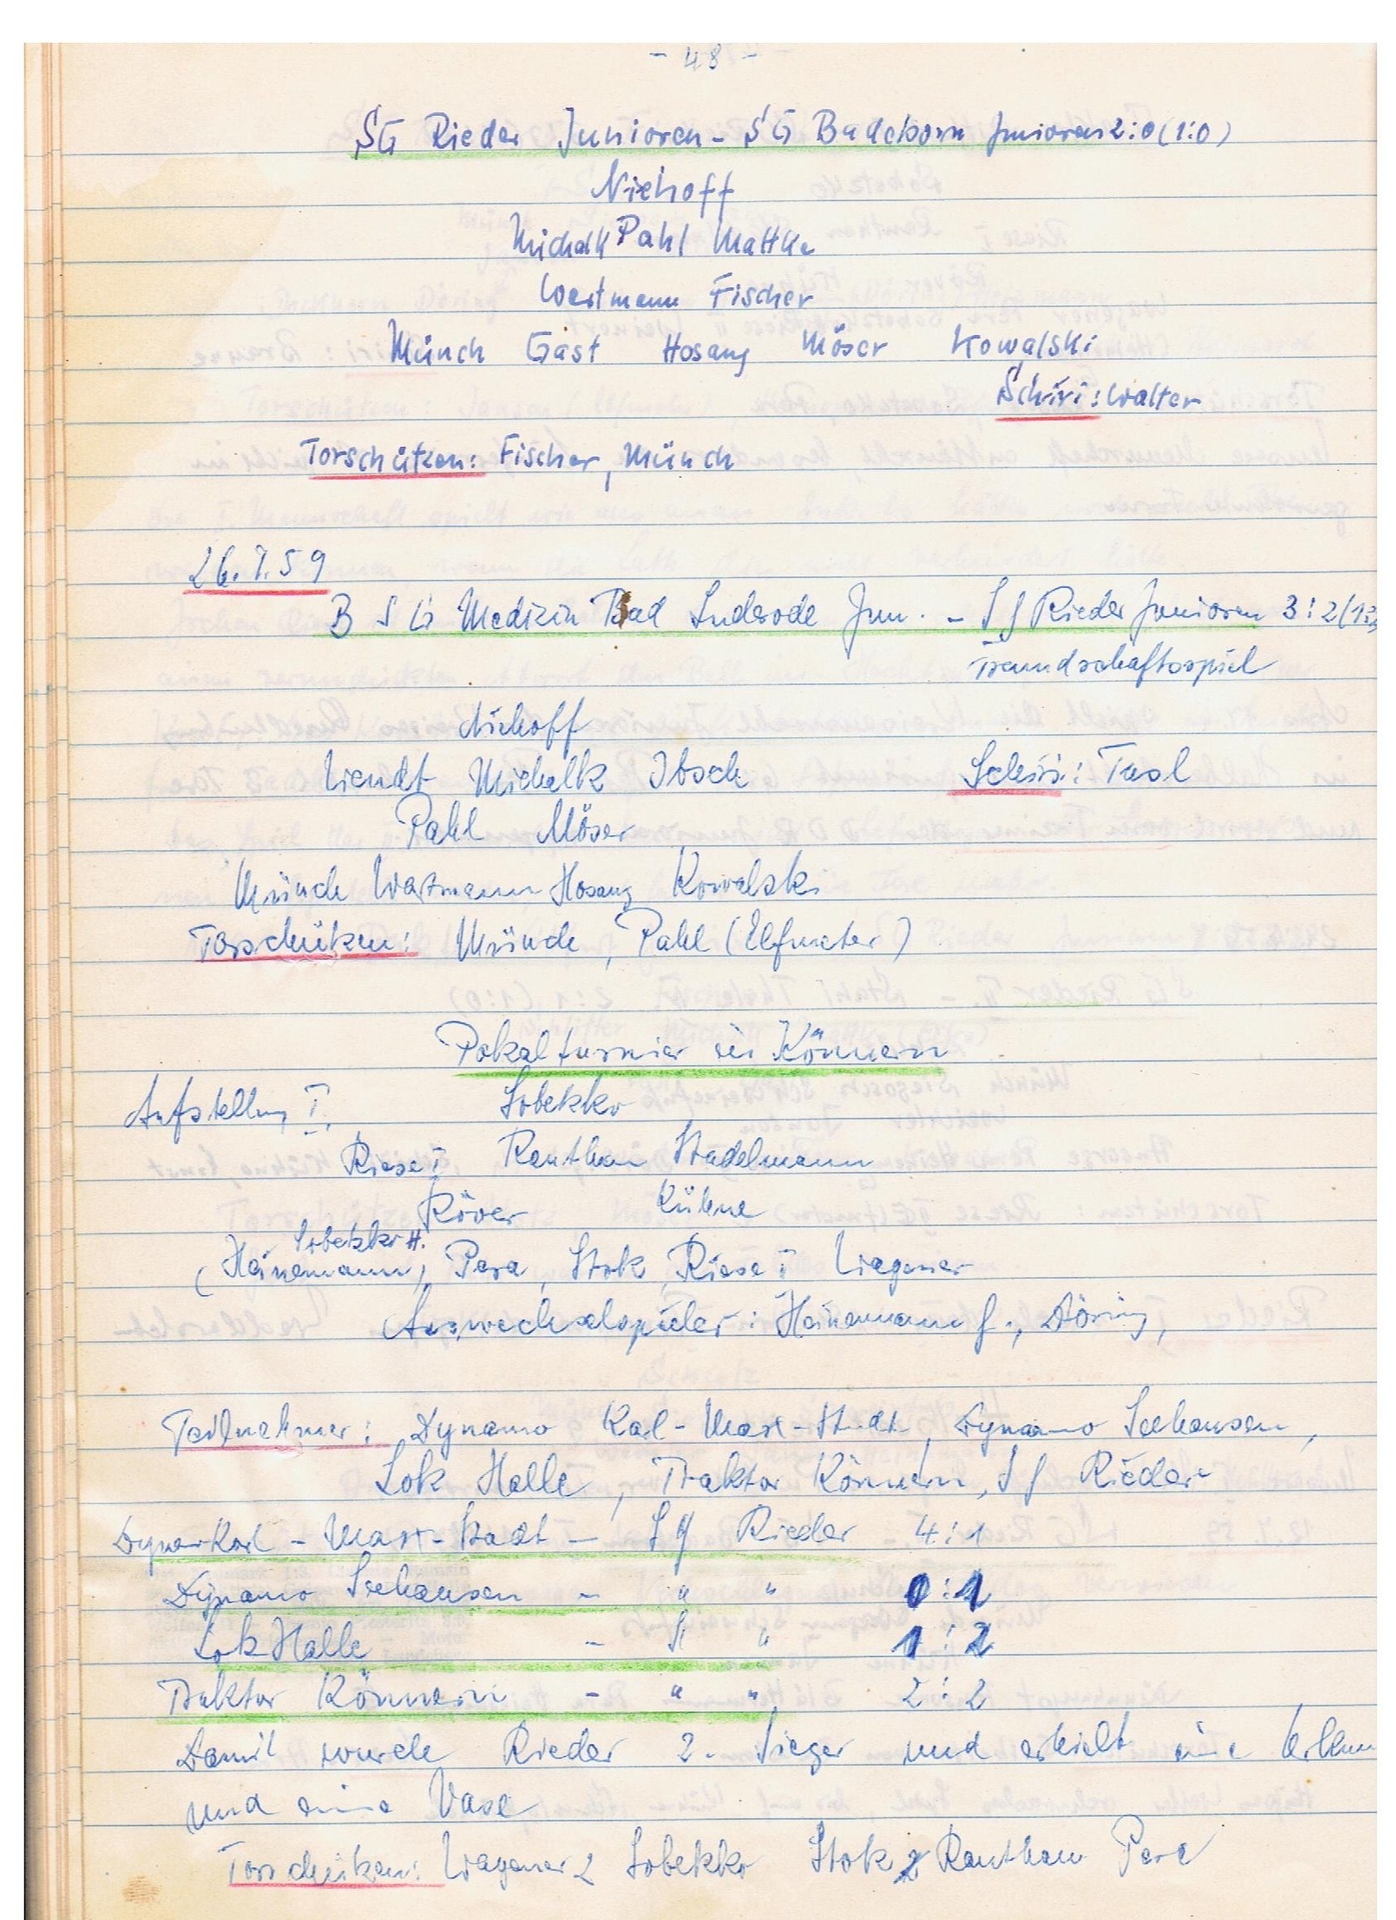 - 48 -
SG Rieder Junioren - SG Badeborn Junioren 2:0 (1:0)
Niehoff
Michalk Pahl Mattke
Wertmann Fischer
Münch Gast Hosang Möser Kowalski
Schiri: Walter
Torschützen: Fischer, Münch
26.7.59
BSG Medizin Bad Suderode Jun. - SG Rieder Junioren 3:2 (1:
Freundschaftsspiel
Niehoff
Michalk Schiri:
Pahl Möser
Münch Wertmann Hosang Kowalski
Torschützen: Münch, Pahl (Elfmeter)
Pokalturnier in Könnern
Aufstellung I. Sobetzko
Riese I Rauthan Stadelmann
Röver Kühne
Sobetzko H.
(Heinemann), Pera, Stok, Riese I Wagener
Auswechselspieler: Heinemann G., Döring,
Teilnehmer: Dynamo Karl-Marx-Stadt, Dynamo Seehausen,
Lok Halle, Traktor Könnern, SG Rieder
Dynamo Karl-Marx-Stadt - SG Rieder 4:1
Dynamo Seehausen - " " 0:1
Lok Halle - " " 1:2
Traktor Könnern - " " 2:2
Damit wurde Rieder 2. Sieger und erhielt eine
und eine Vase
Torschützen: Wagener 2 Sobetzko Stok 2 Rauthan Pera